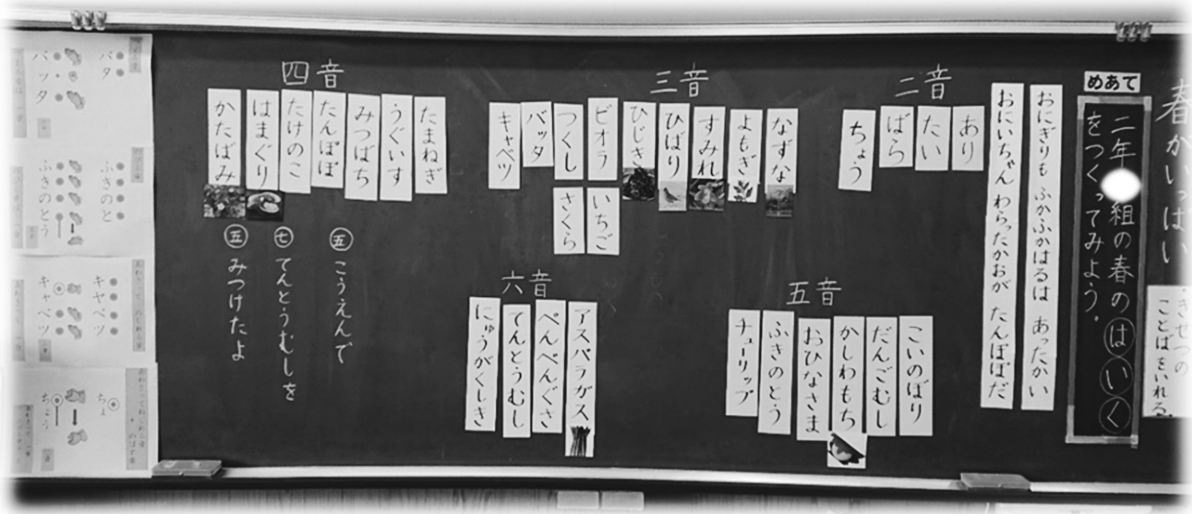 春がいっぱい
きせつの
ことばをいれる。
めあて
二年 組の春のはいく
をつくってみよう。
おにぎりも ふかふかはるは あったかい
おにいちゃん わらったかおが たんぽぽだ
二音
あり
たい
ばら
ちょう
三音
なずな
よもぎ
すみれ
ひばり
ひじき
ビオラ
つくし
バッタ
キャベツ
いちご
さくら
四音
たまねぎ
うぐいす
みつばち
たんぽぽ
たけのこ
はまぐり
かたばみ
五音
こいのぼり
だんごむし
かしわもち
おひなさま
ふきのとう
チューリップ
六音
アスパラガス
ぺんぺんぐさ
てんとうむし
にゅうがくしき
五 こうえんで
七 てんとうむしを
五 みつけたよ
バタ
バッタ
ふきのと
ふきのとう
キヤベツ
キャベツ
ちょ
ちょう